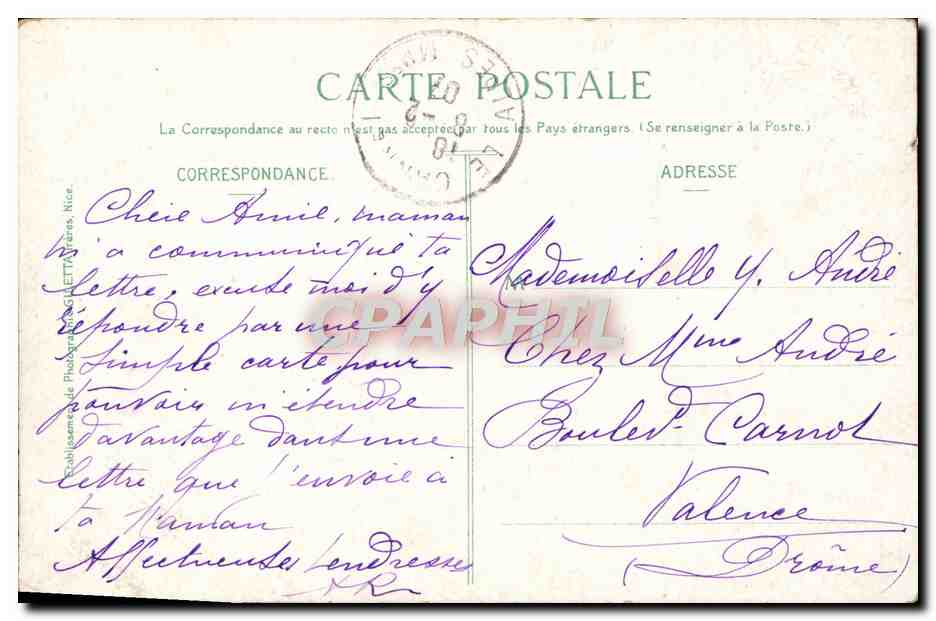 CARTE POSTALE
La Correspondance au recto n'est pas acceptée par tous les Pays étrangers. (Se renseigner à la Poste.)
CORRESPONDANCE
Chère Amie, maman
m'a communiqué ta
lettre, excuse moi d'y
répondre par une
simple carte pour
pouvoir m'étendre
davantage dans une
lettre que j'envoie à
ta Maman
Affectueuses tendresses
AR
ADRESSE
Mademoiselle Y. André
Chez Mme André
Boulevd Carnot
Valence
(Drôme)
Etablissement de Photographie GILETTA frères, Nice.
ALPES MARIT
18 -2
07
CPAPHIL